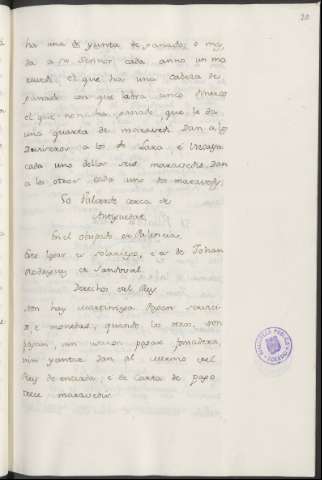 20
ha una dε yunta de ganado, o mo
da a su Señor cada anno un ma
ravedi, el que ha una cabeza de
ganado con que labra cinco dineros
el que non ha ganado que le da
una quarta de maravedi. Dan a los
Deviseros a los de Lara, e Vizcaya
cada uno dellos seis maravedis, Dan
a los otros cada uno dos maravedis.
So Valverde cerca de
Antiguedat
En el obispado de Palencia
Este logar es solariego, e es de Johan
Rodriguez de Sandoval
Derechos del Rey
Non hay martiniega Pagan servici
o, e monedas, quando los otros, non
pagan, nin usaron pagar fonsadera,
nin yantar dan al merino del
Rey de entrada, e de Carta de pago
trece maravedis
BIBLIOTECA PUBLICA
TOLEDO